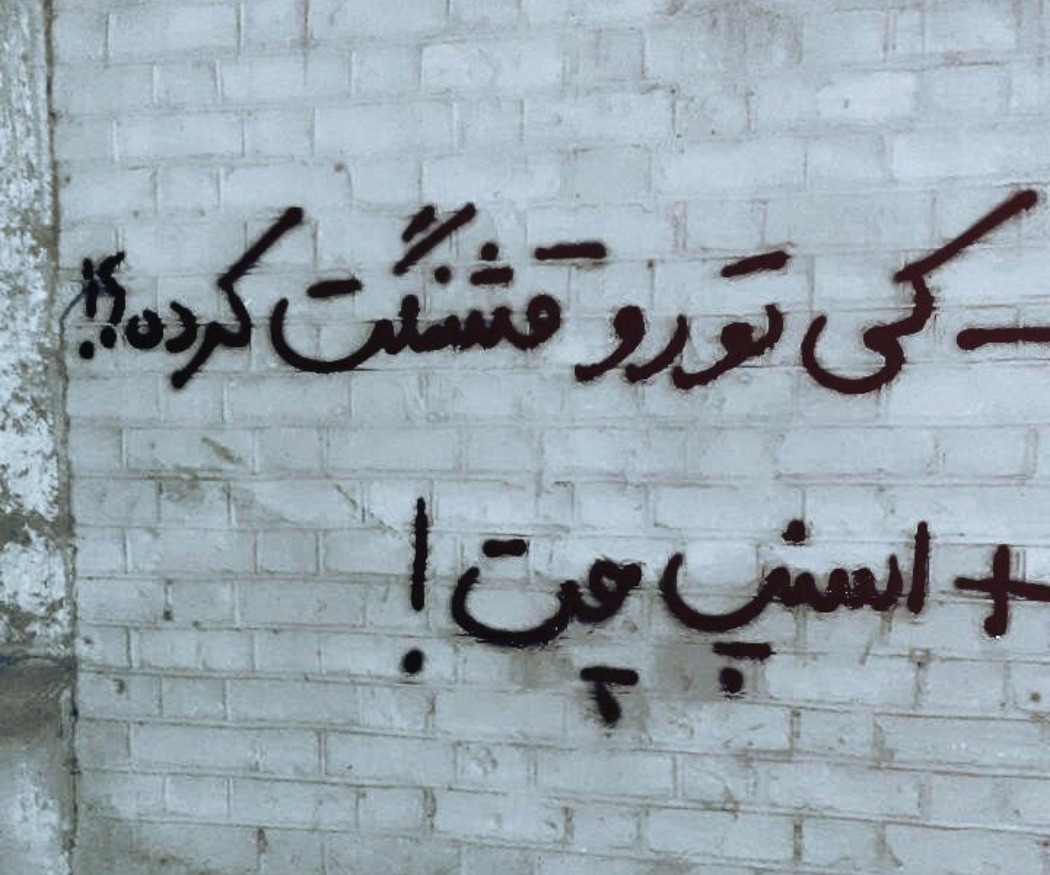 - کی تورو قشنگت کرده؟!
+ اسنپ چت!